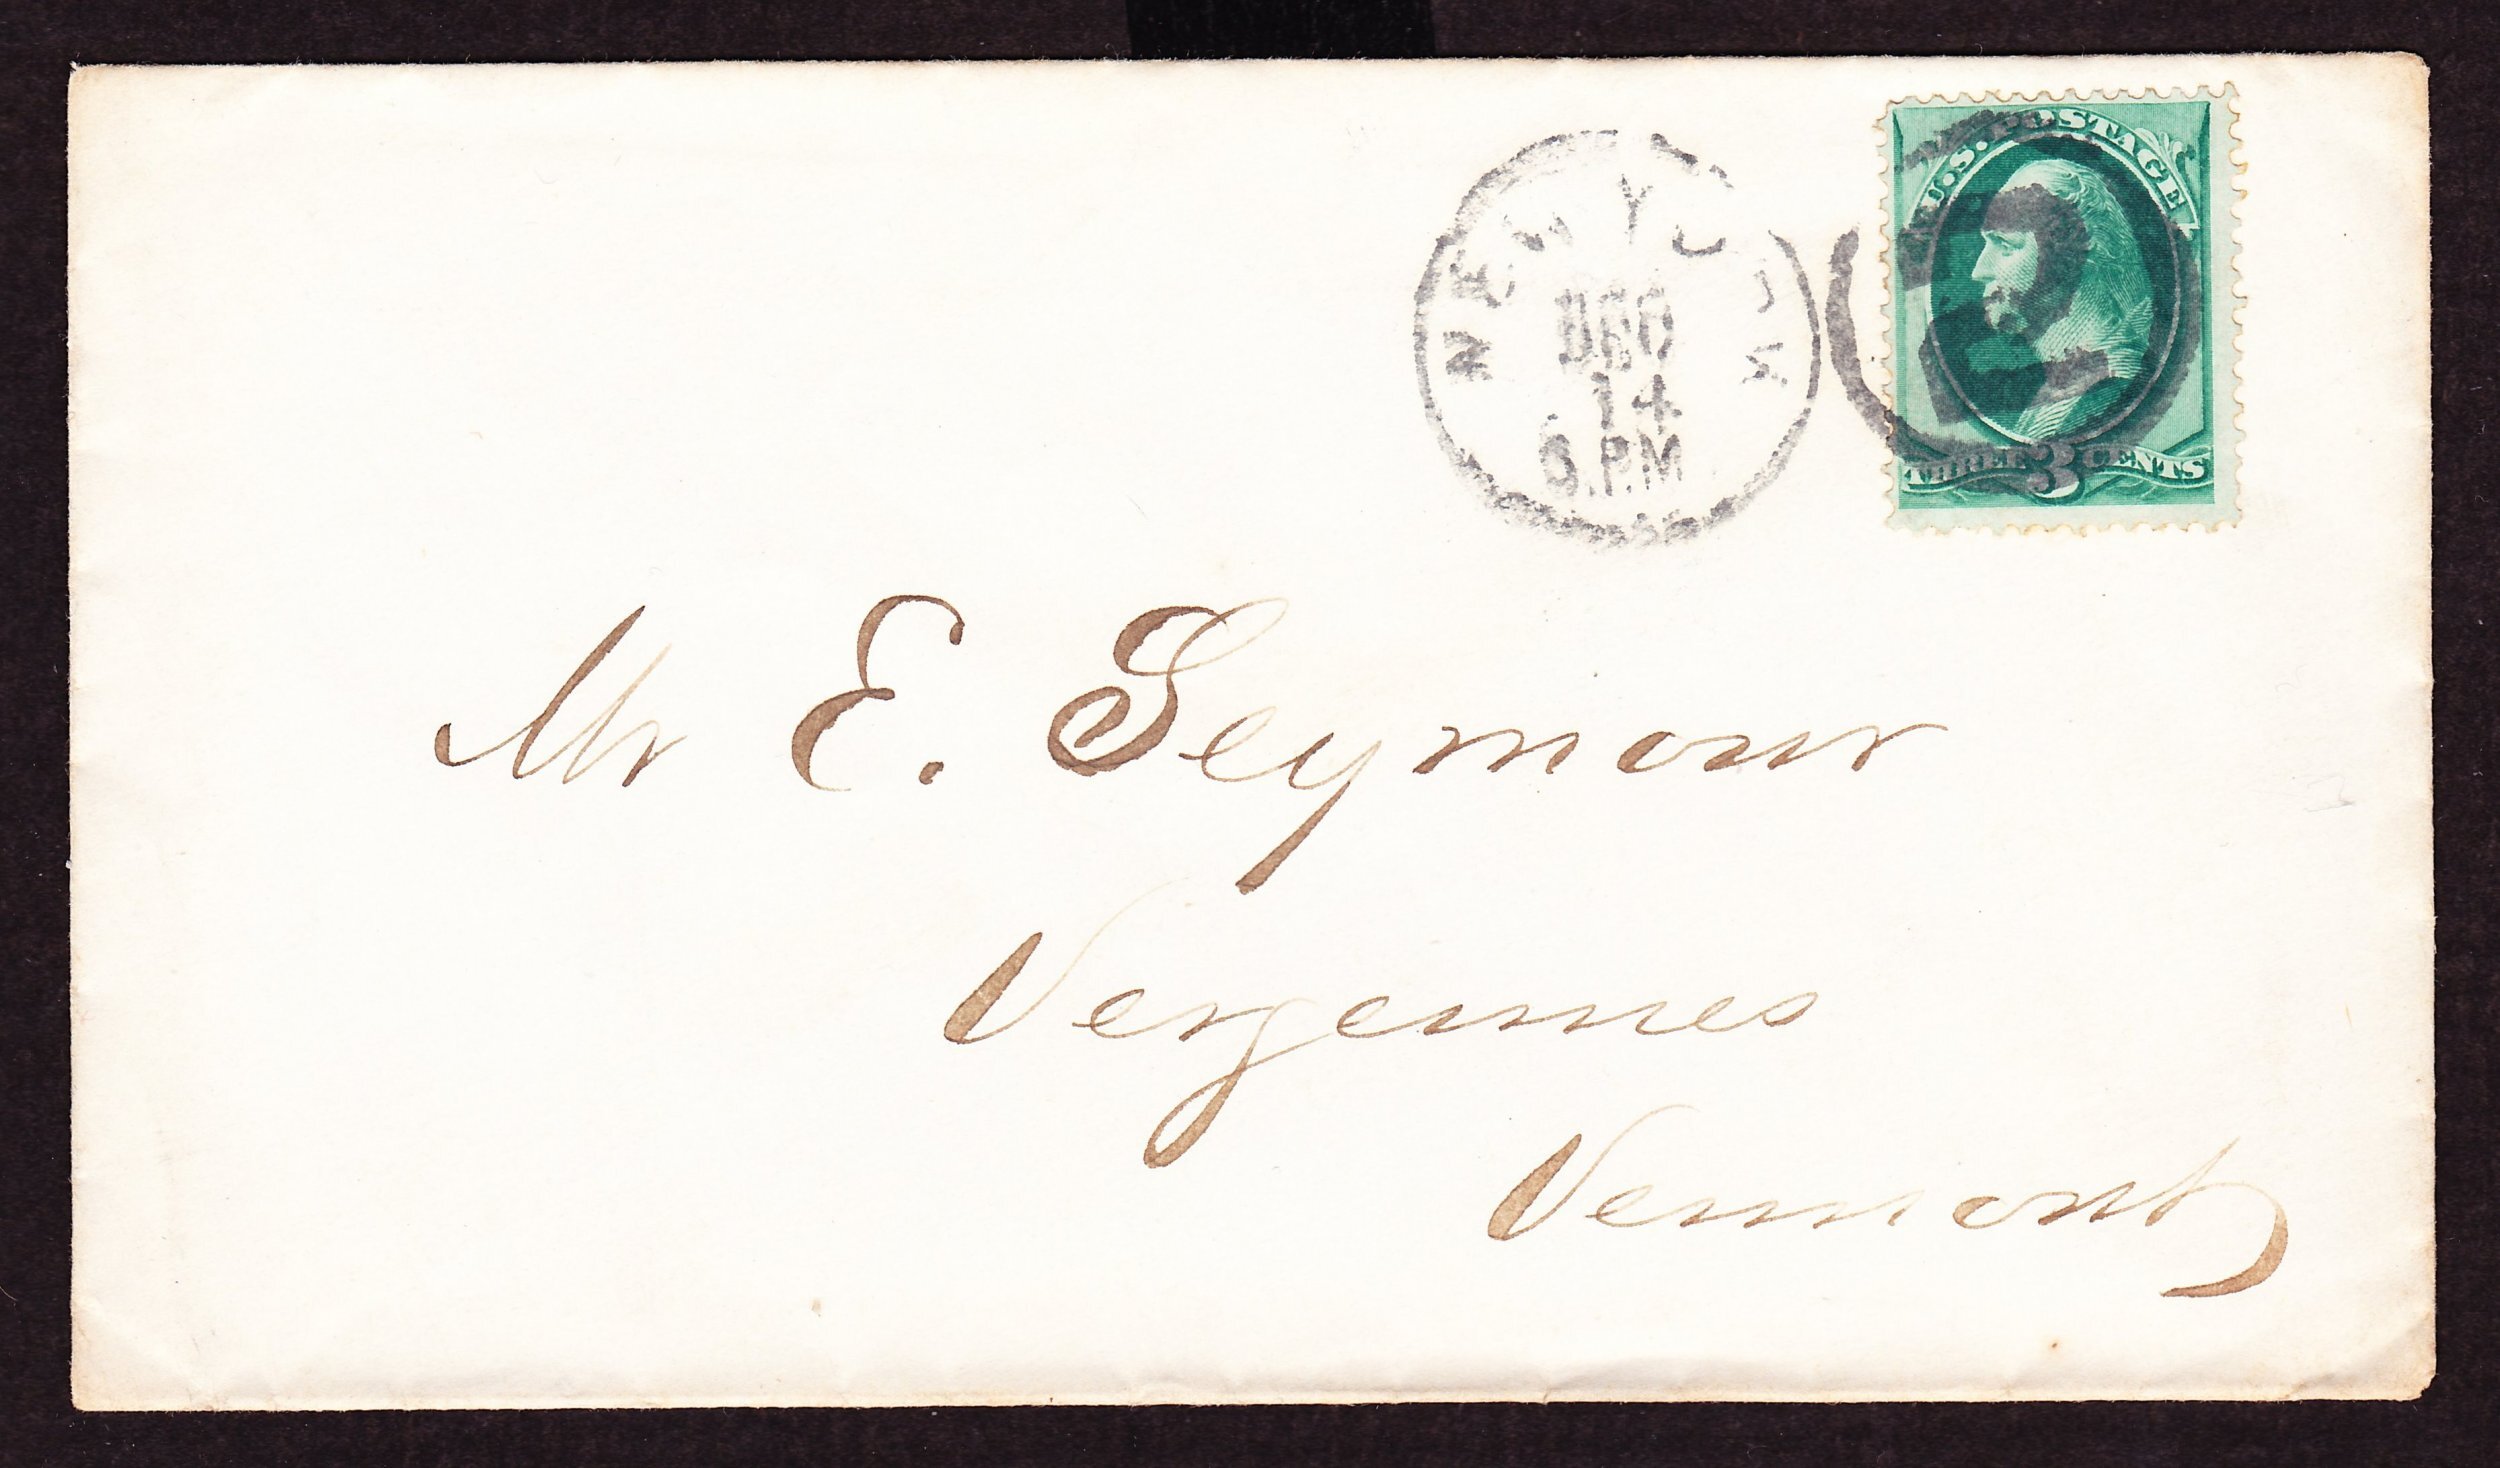 U.S. POSTAGE
NEW YORK
DEC
14
6.P.M
THREE 3 CENTS
2
Mr E. Seymour
Vergennes
Vermont